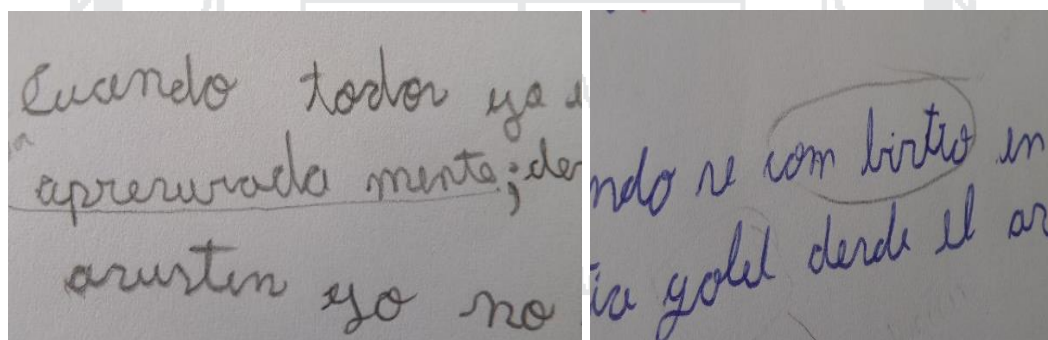 Cuando todos ya
apresurada mente; de
asusten yo no
ndo se com birtio en
ia yolel desde el